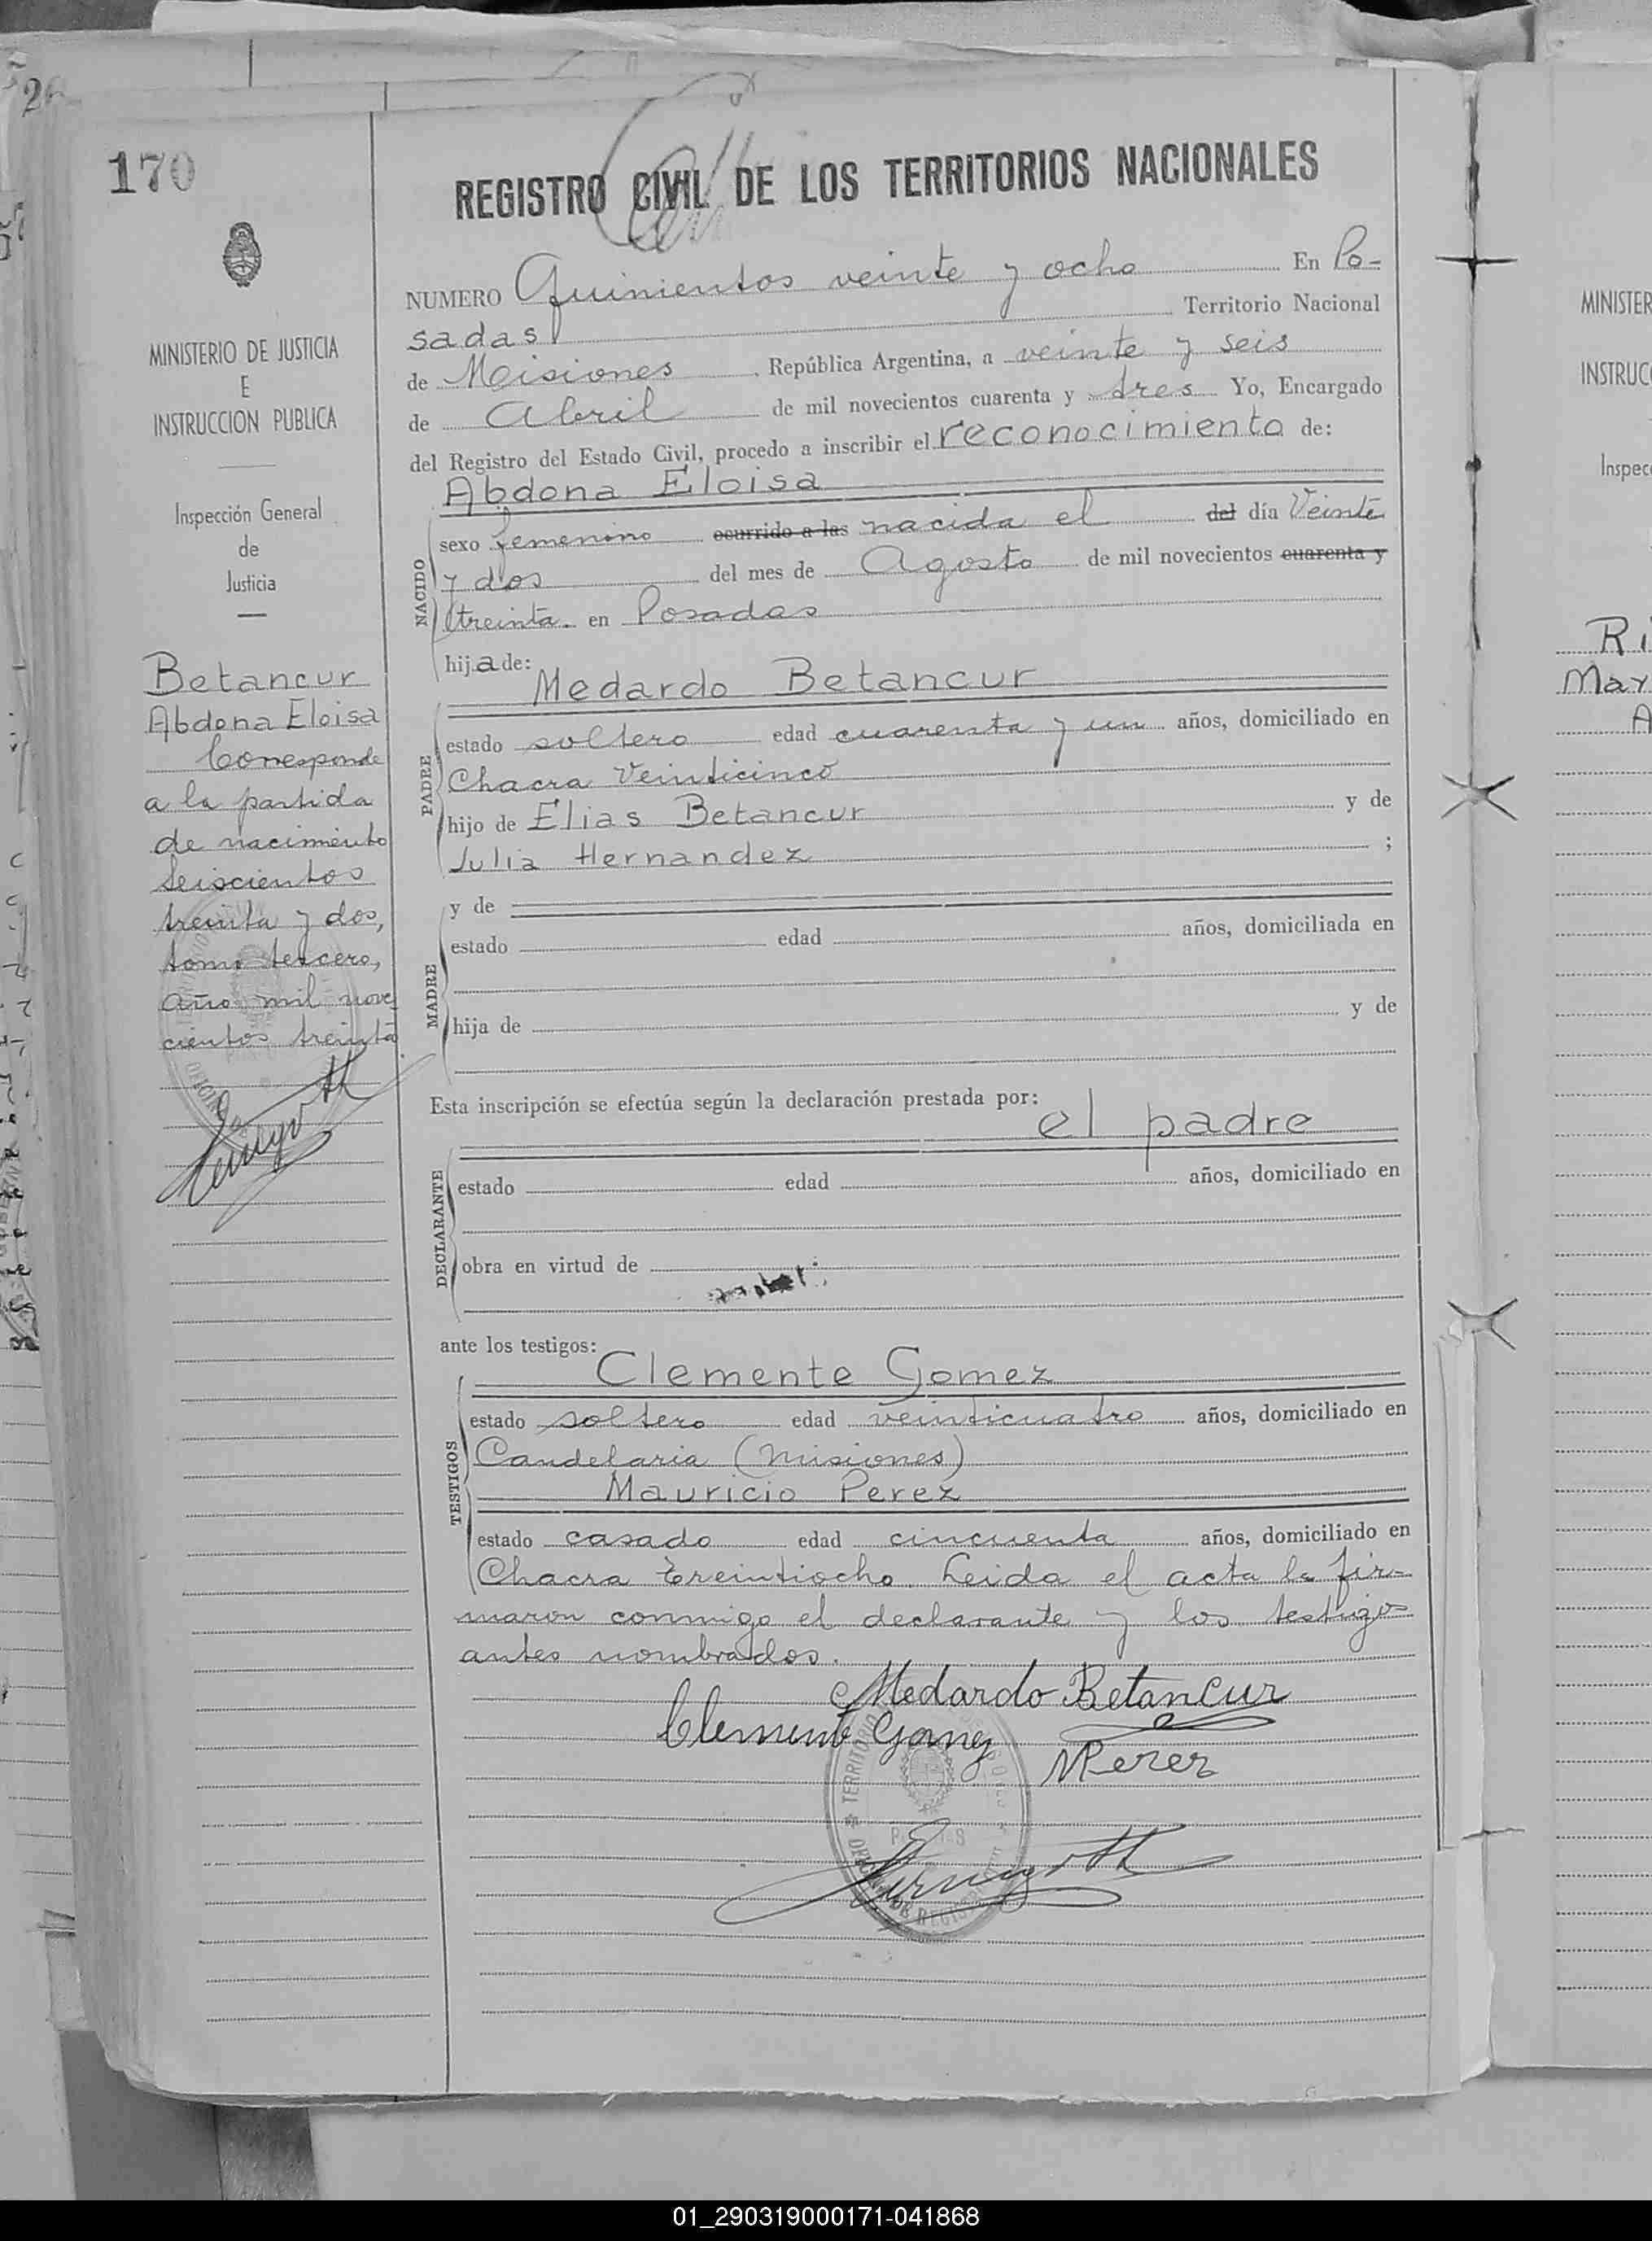 170
MINISTERIO DE JUSTICIA
E
INSTRUCCION PUBLICA
Inspección General
de
Justicia
Betancur
Abdona Eloisa
Corresponde
a la partida
de nacimiento
Seiscientos
treinta y dos,
tomo tercero,
año mil nove
cientos treinta
REGISTRO CIVIL DE LOS TERRITORIOS NACIONALES
NUMERO Quinientos veinte y ocho En Po-
sadas Territorio Nacional
de Misiones, República Argentina, a veinte y seis
de Abril de mil novecientos cuarenta y tres Yo, Encargado
del Registro del Estado Civil, procedo a inscribir el reconocimiento de:
Abdona Eloisa
NACIDO
sexo femenino ocurrido a las nacida el del día Veinte
y dos del mes de Agosto de mil novecientos cuarenta y
treinta. en Posadas
hija de:
Medardo Betancur
PADRE
estado soltero edad cuarenta y un años, domiciliado en
Chacra Veinticinco
hijo de Elias Betancur y de
Julia Hernandez ;
MADRE
y de
estado edad años, domiciliada en
hija de y de
Esta inscripción se efectúa según la declaración prestada por:
el padre
DECLARANTE
estado edad años, domiciliado en
obra en virtud de
ante los testigos:
Clemente Gomez
TESTIGOS
estado soltero edad veinticuatro años, domiciliado en
Candelaria (Misiones)
Mauricio Perez
estado casado edad cincuenta años, domiciliado en
Chacra treintiocho. Leida el acta la fir-
maron conmigo el declarante y los testigos
antes nombrados.
Medardo Betancur
Clemente Gomez
MPerez
MINISTER
INSTRUC
Inspec
Ri
Mar
A
01_290319000171-041868